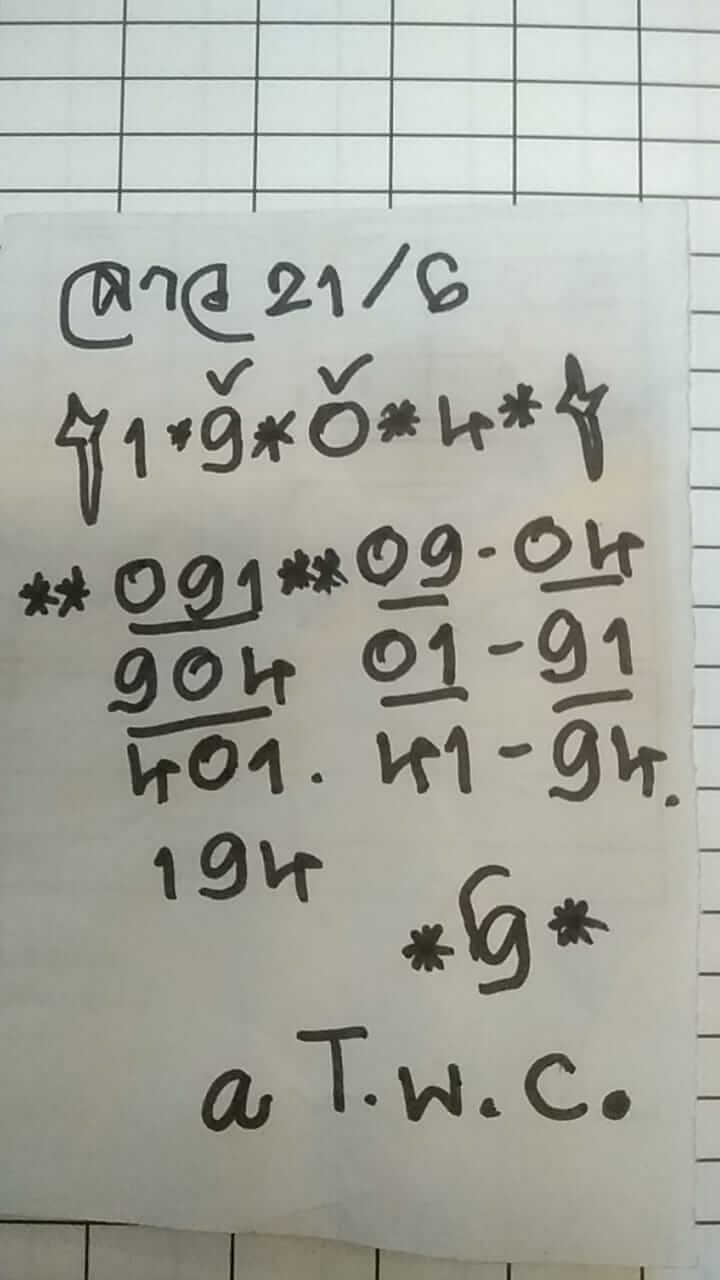 ลาว 21/6
1*9*0*4*
**091**09-04
904 01-91
401. 41-94.
194
*9*
a T.w.c.